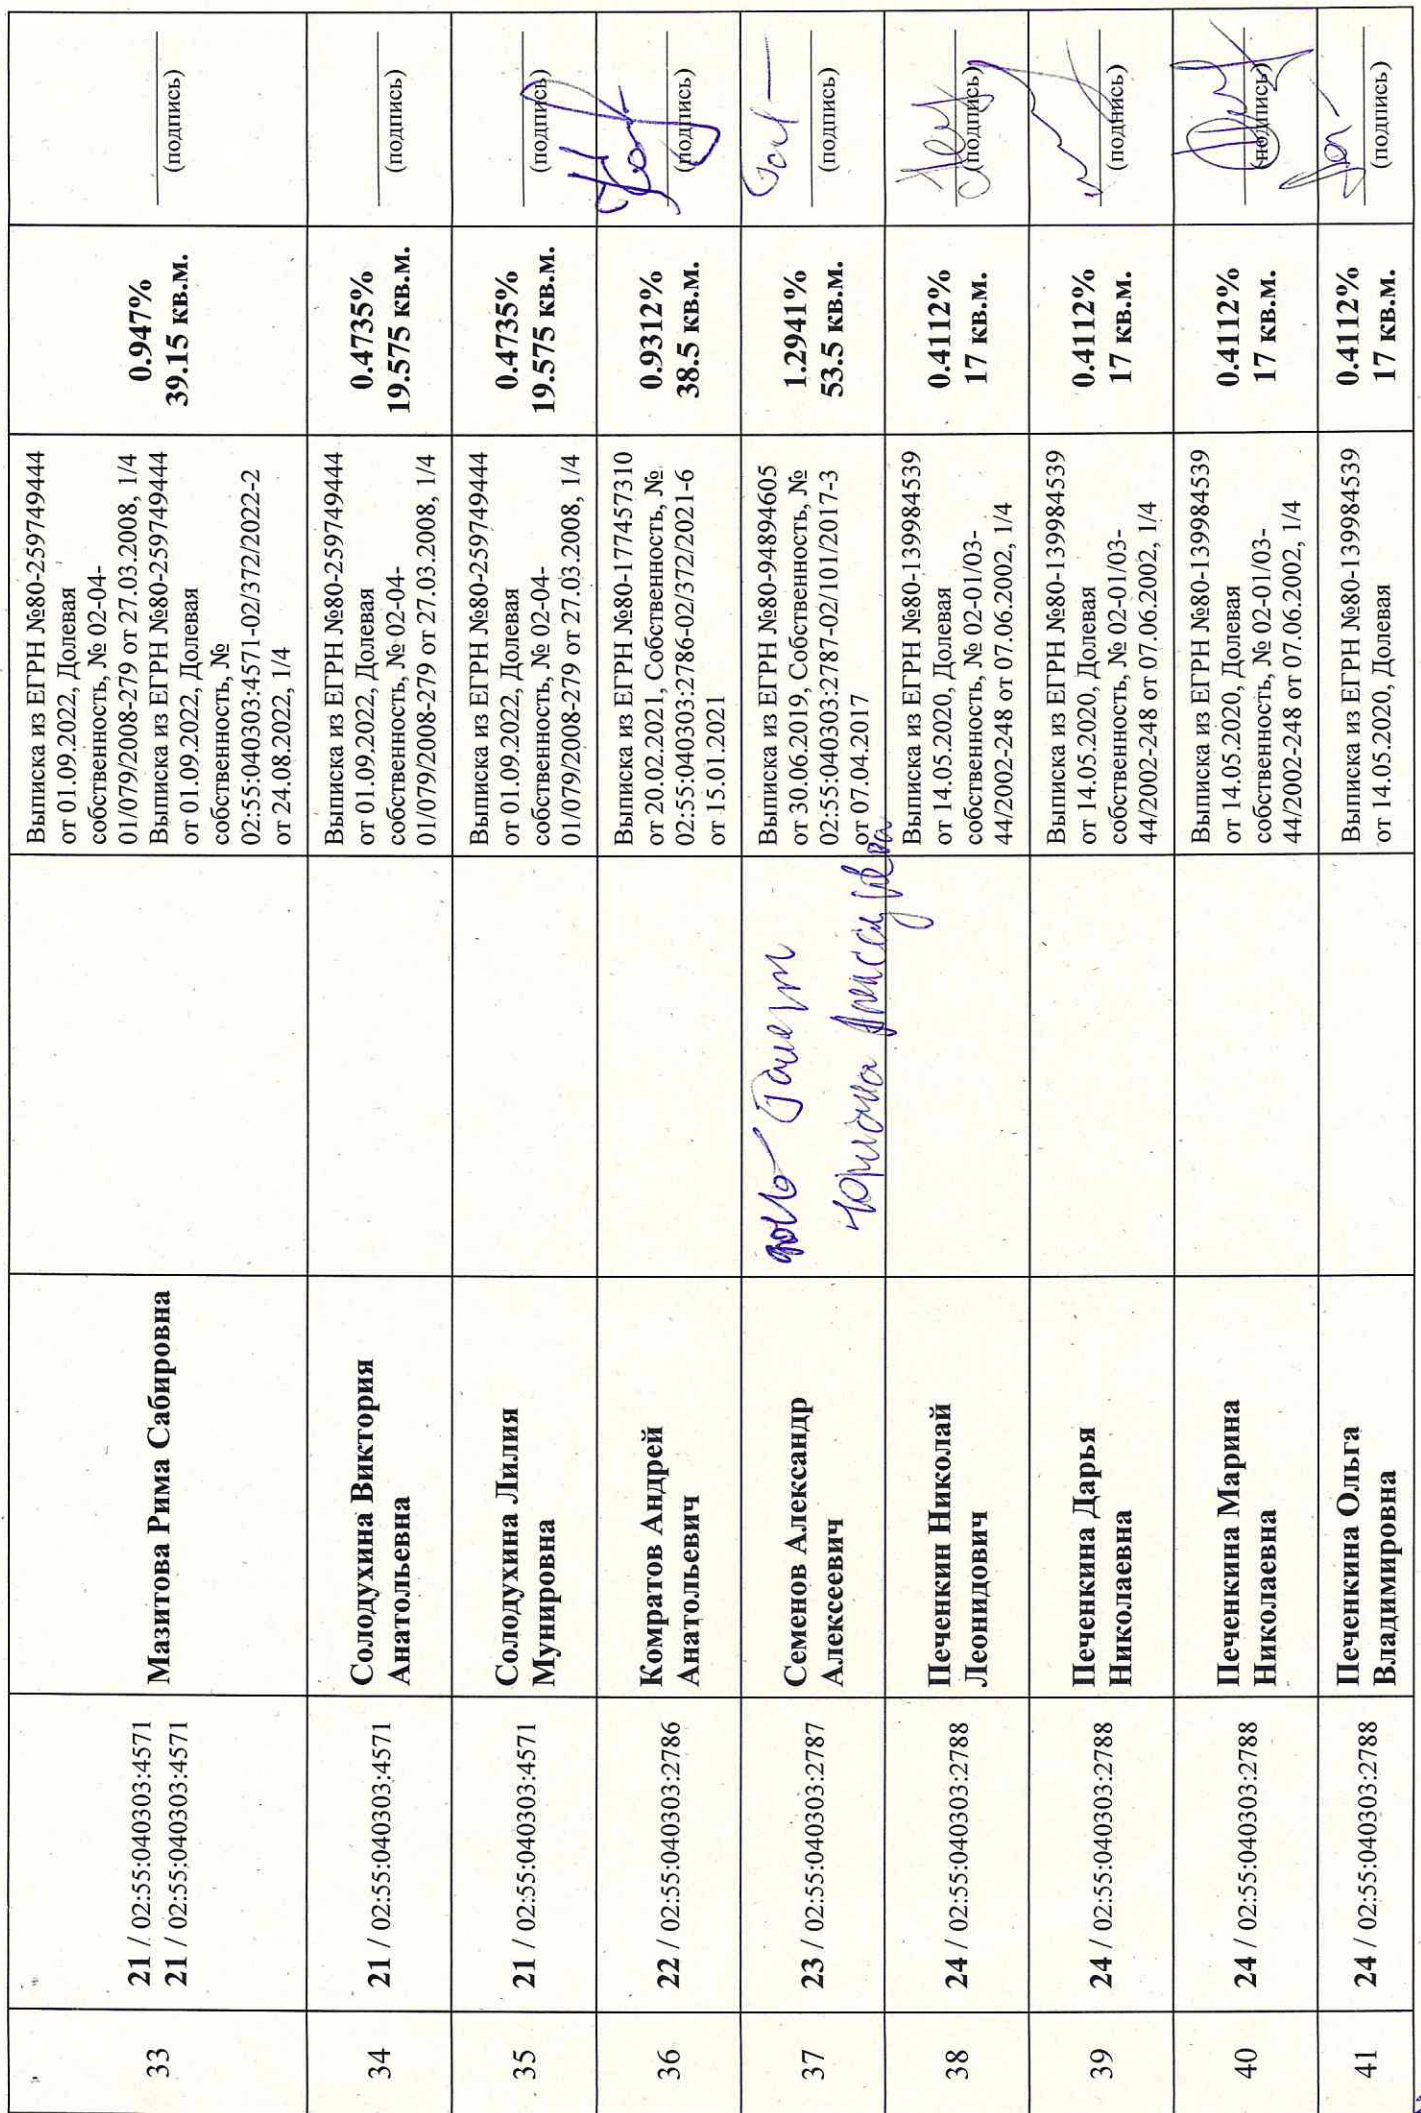 33
21 / 02:55:040303:4571
21 / 02:55:040303:4571
Мазитова Рима Сабировна
Выписка из ЕГРН №80-259749444
от 01.09.2022, Долевая
собственность, № 02-04-
01/079/2008-279 от 27.03.2008, 1/4
Выписка из ЕГРН №80-259749444
от 01.09.2022, Долевая
собственность, №
02:55:040303:4571-02/372/2022-2
от 24.08.2022, 1/4
0.947%
39.15 кв.м.
(подпись)
34
21 / 02:55:040303:4571
Солодухина Виктория
Анатольевна
Выписка из ЕГРН №80-259749444
от 01.09.2022, Долевая
собственность, № 02-04-
01/079/2008-279 от 27.03.2008, 1/4
0.4735%
19.575 кв.м.
(подпись)
35
21 / 02:55:040303:4571
Солодухина Лилия
Мунировна
Выписка из ЕГРН №80-259749444
от 01.09.2022, Долевая
собственность, № 02-04-
01/079/2008-279 от 27.03.2008, 1/4
0.4735%
19.575 кв.м.
(подпись)
36
22 / 02:55:040303:2786
Комратов Андрей
Анатольевич
Выписка из ЕГРН №80-177457310
от 20.02.2021, Собственность, №
02:55:040303:2786-02/372/2021-6
от 15.01.2021
0.9312%
38.5 кв.м.
(подпись)
37
23 / 02:55:040303:2787
Семенов Александр
Алексеевич
Выписка из ЕГРН №80-94894605
от 30.06.2019, Собственность, №
02:55:040303:2787-02/101/2017-3
от 07.04.2017
1.2941%
53.5 кв.м.
(подпись)
38
24 / 02:55:040303:2788
Печенкин Николай
Леонидович
Выписка из ЕГРН №80-139984539
от 14.05.2020, Долевая
собственность, № 02-01/03-
44/2002-248 от 07.06.2002, 1/4
0.4112%
17 кв.м.
(подпись)
39
24 / 02:55:040303:2788
Печенкина Дарья
Николаевна
Выписка из ЕГРН №80-139984539
от 14.05.2020, Долевая
собственность, № 02-01/03-
44/2002-248 от 07.06.2002, 1/4
0.4112%
17 кв.м.
(подпись)
40
24 / 02:55:040303:2788
Печенкина Марина
Николаевна
Выписка из ЕГРН №80-139984539
от 14.05.2020, Долевая
собственность, № 02-01/03-
44/2002-248 от 07.06.2002, 1/4
0.4112%
17 кв.м.
(подпись)
41
24 / 02:55:040303:2788
Печенкина Ольга
Владимировна
Выписка из ЕГРН №80-139984539
от 14.05.2020, Долевая
0.4112%
17 кв.м.
(подпись)